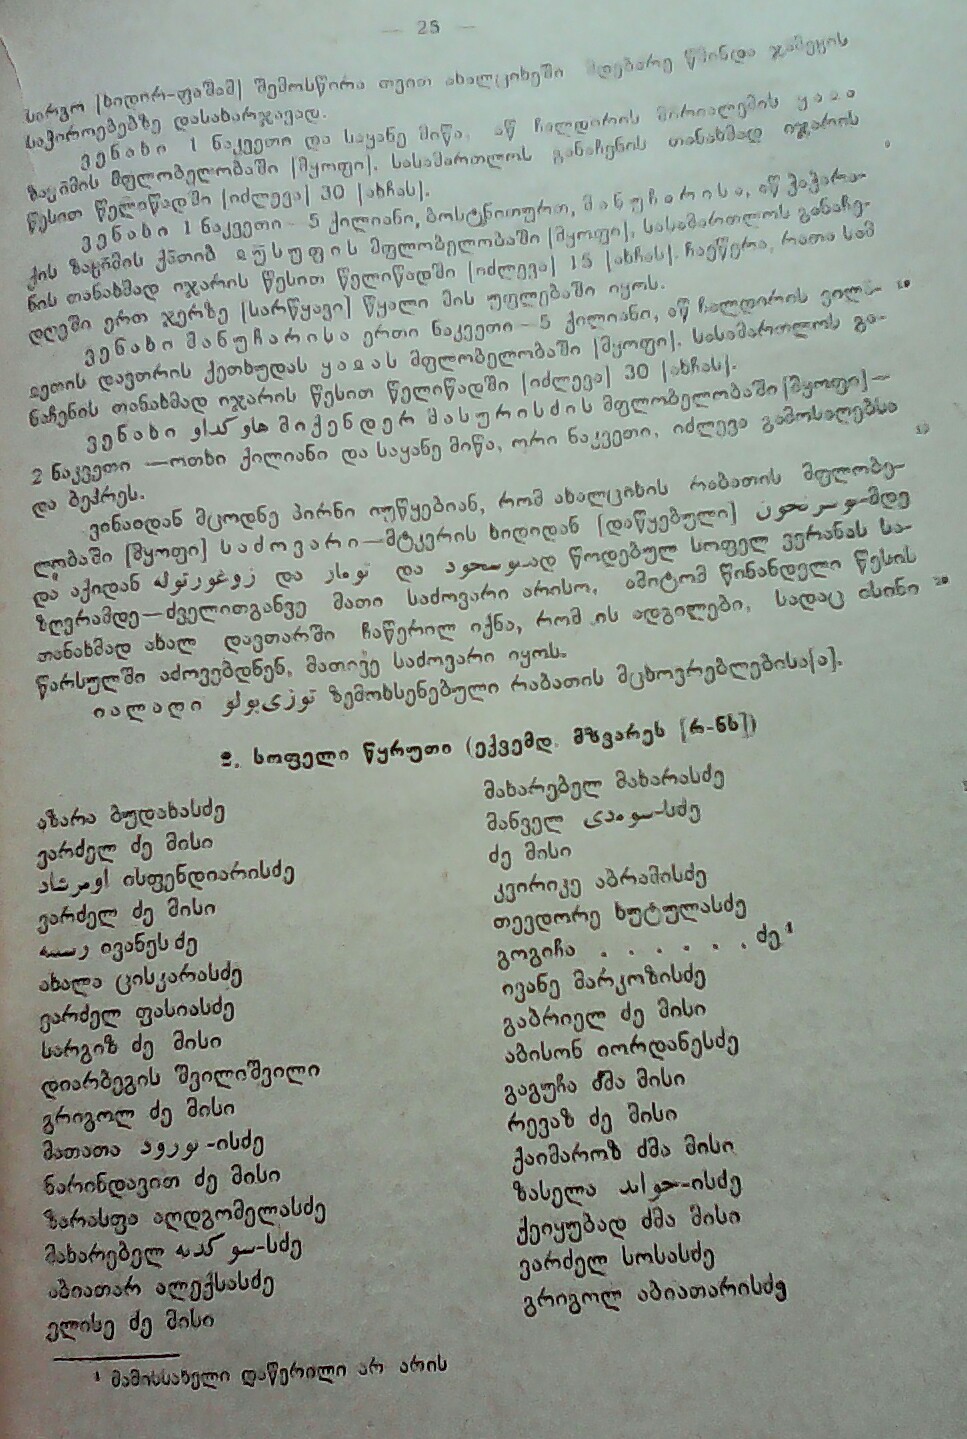 — 25 —
სარგო [ხიდირ-ფაშამ] შემოსწირა თვით ახალციხეში მდებარე წმინდა ჯამეყის
საჭიროებებზე დასახარჯავად.
ვენახი 1 ნაკვეთი და საყანე მიწა, აწ ჩალდირის მირიალემის
ზაჲმის მფლობელობაში [მყოფი]. სასამართლოს განაჩენის თანახმად იჯარის
წესით წელიწადში [იძლევა] 30 [ახჩას].
ვენახი 1 ნაკვეთი—5 ქილიანი, ბოსტნითურთ, მანუჩარისა, აწ
ქის ზაჲმის ქათიბ მფლობელობაში [მყოფი]. სასამართლოს განაჩე-
ნის თანახმად იჯარის წესით წელიწადში [იძლევა] 15 [ახჩას]. ჩაეწერა, რათა სამ
დღეში ერთ ჯერზე [სარწყავი] წყალი მის უფლებაში იყოს.
ვენახი მანუჩარისა ერთი ნაკვეთი—5 ქილიანი, აწ ჩალდირის ვილა- 10
ეთის დავთრის ქეთხუდას მფლობელობაში [მყოფი]. სასამართლოს გა-
ნაჩენის თანახმად იჯარის წესით წელიწადში [იძლევა] 30 [ახჩას].
ვენახი მიქენდერ მასურისძის მფლობელობაში [მყოფი]—
2 ნაკვეთი —ოთხი ქილიანი და საყანე მიწა, ორი ნაკვეთი, იძლევა გამოსაღებსა
და ბეჰრეს.
ვინაიდან მცოდნე პირნი იუწყებიან, რომ ახალციხის რაბათის მფლობე-
ლობაში [მყოფი] საძოვარი—მტკვრის ხიდიდან [დაწყებული] -მდე
და აქიდან და და წოდებულ სოფელ ვერანას სა-
ზღვრამდე—ძველითგანვე მათი საძოვარი არისო, ამიტომ წინანდელი წესის
თანახმად ახალ დავთარში ჩაწერილ იქნა, რომ ის ადგილები, სადაც ისინი 20
წარსულში აძოვებდნენ, მათივე საძოვარი იყოს.
იალაღი ზემოხსენებული რაბათის მცხოვრებლებისა[ა].
2. სოფელი წყრუთი (ექვემდ. მზვარეს [რ-ნს])
აზარა ბუდახასძე
ვარძელ ძე მისი
ისფენდიარისძე
ვარძელ ძე მისი
ივანესძე
ახალა ცისკარასძე
ვარძელ ფასიასძე
სარგიზ ძე მისი
დიარბეგის შვილიშვილი
გრიგოლ ძე მისი
მათათა -ისძე
ნარინდავით ძე მისი
ზარასფა აღდგომელასძე
მახარებელ -სძე
აბიათარ ალექსასძე
ელისე ძე მისი
მახარებელ მახარასძე
მანველ -სძე
ძე მისი
კვირიკე აბრამისძე
თევდორე ხუტულასძე
გოგიჩა . . . . . . . ძე¹
ივანე მარკოზისძე
გაბრიელ ძე მისი
აბისონ იორდანესძე
გაგუჩა ძმა მისი
რევაზ ძე მისი
ქაიმაროზ ძმა მისი
ზასელა -ისძე
ქეიყუბად ძმა მისი
ვარძელ სოსასძე
გრიგოლ აბიათარისძე
¹ მამისსახელი დაწერილი არ არის